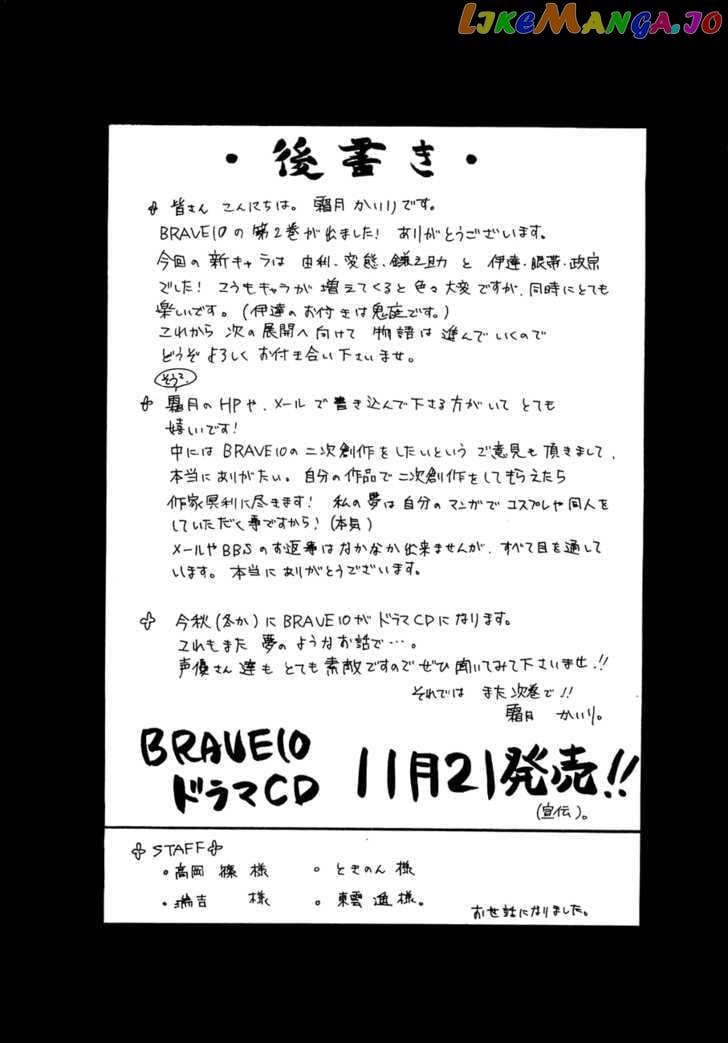 LIKEMANGA.IO
・後書き・
皆さん こんにちは。霜月かいりです。
BRAVE10の第2巻が出ました！ありがとうございます。
今回の新キャラは 由利・変態・鎌之助と 伊達・眼帯・政宗
でした！こうもキャラが 増えてくると色々大変ですが、同時にとても
楽しいです。(伊達のお付きは鬼庭です。)
これから 次の展開へ向けて 物語は 進んでいくので
どうぞ よろしく お付き合い下さいませ。
そう2、
霜月のHPや、メールで書き込んで下さる方がいて とても
嬉しいです！
中にはBRAVE10の二次創作をしたいという ご意見も頂きまして、
本当にありがたい。自分の作品で二次創作をしてもらえたら
作家冥利に尽きます！私の夢は自分のマンガでコスプレや同人を
していただく事ですから！(本気)
メールやBBSのお返事はなかなか出来ませんが、すべて目を通して
います。本当にありがとうございます。
今秋(冬か)にBRAVE10がドラマCDになります。
これもまた 夢のようなお話で…。
声優さん達も とても素敵ですのでぜひ聞いてみて下さいませ!!
それでは また次巻で!!
霜月 かいり。
BRAVE10
ドラマCD 11月21発売!!
(宣伝)。
STAFF
・高岡 様 ・ときのん 様
・瑞吉 様 ・東雲 遥 様。
お世話になりました。